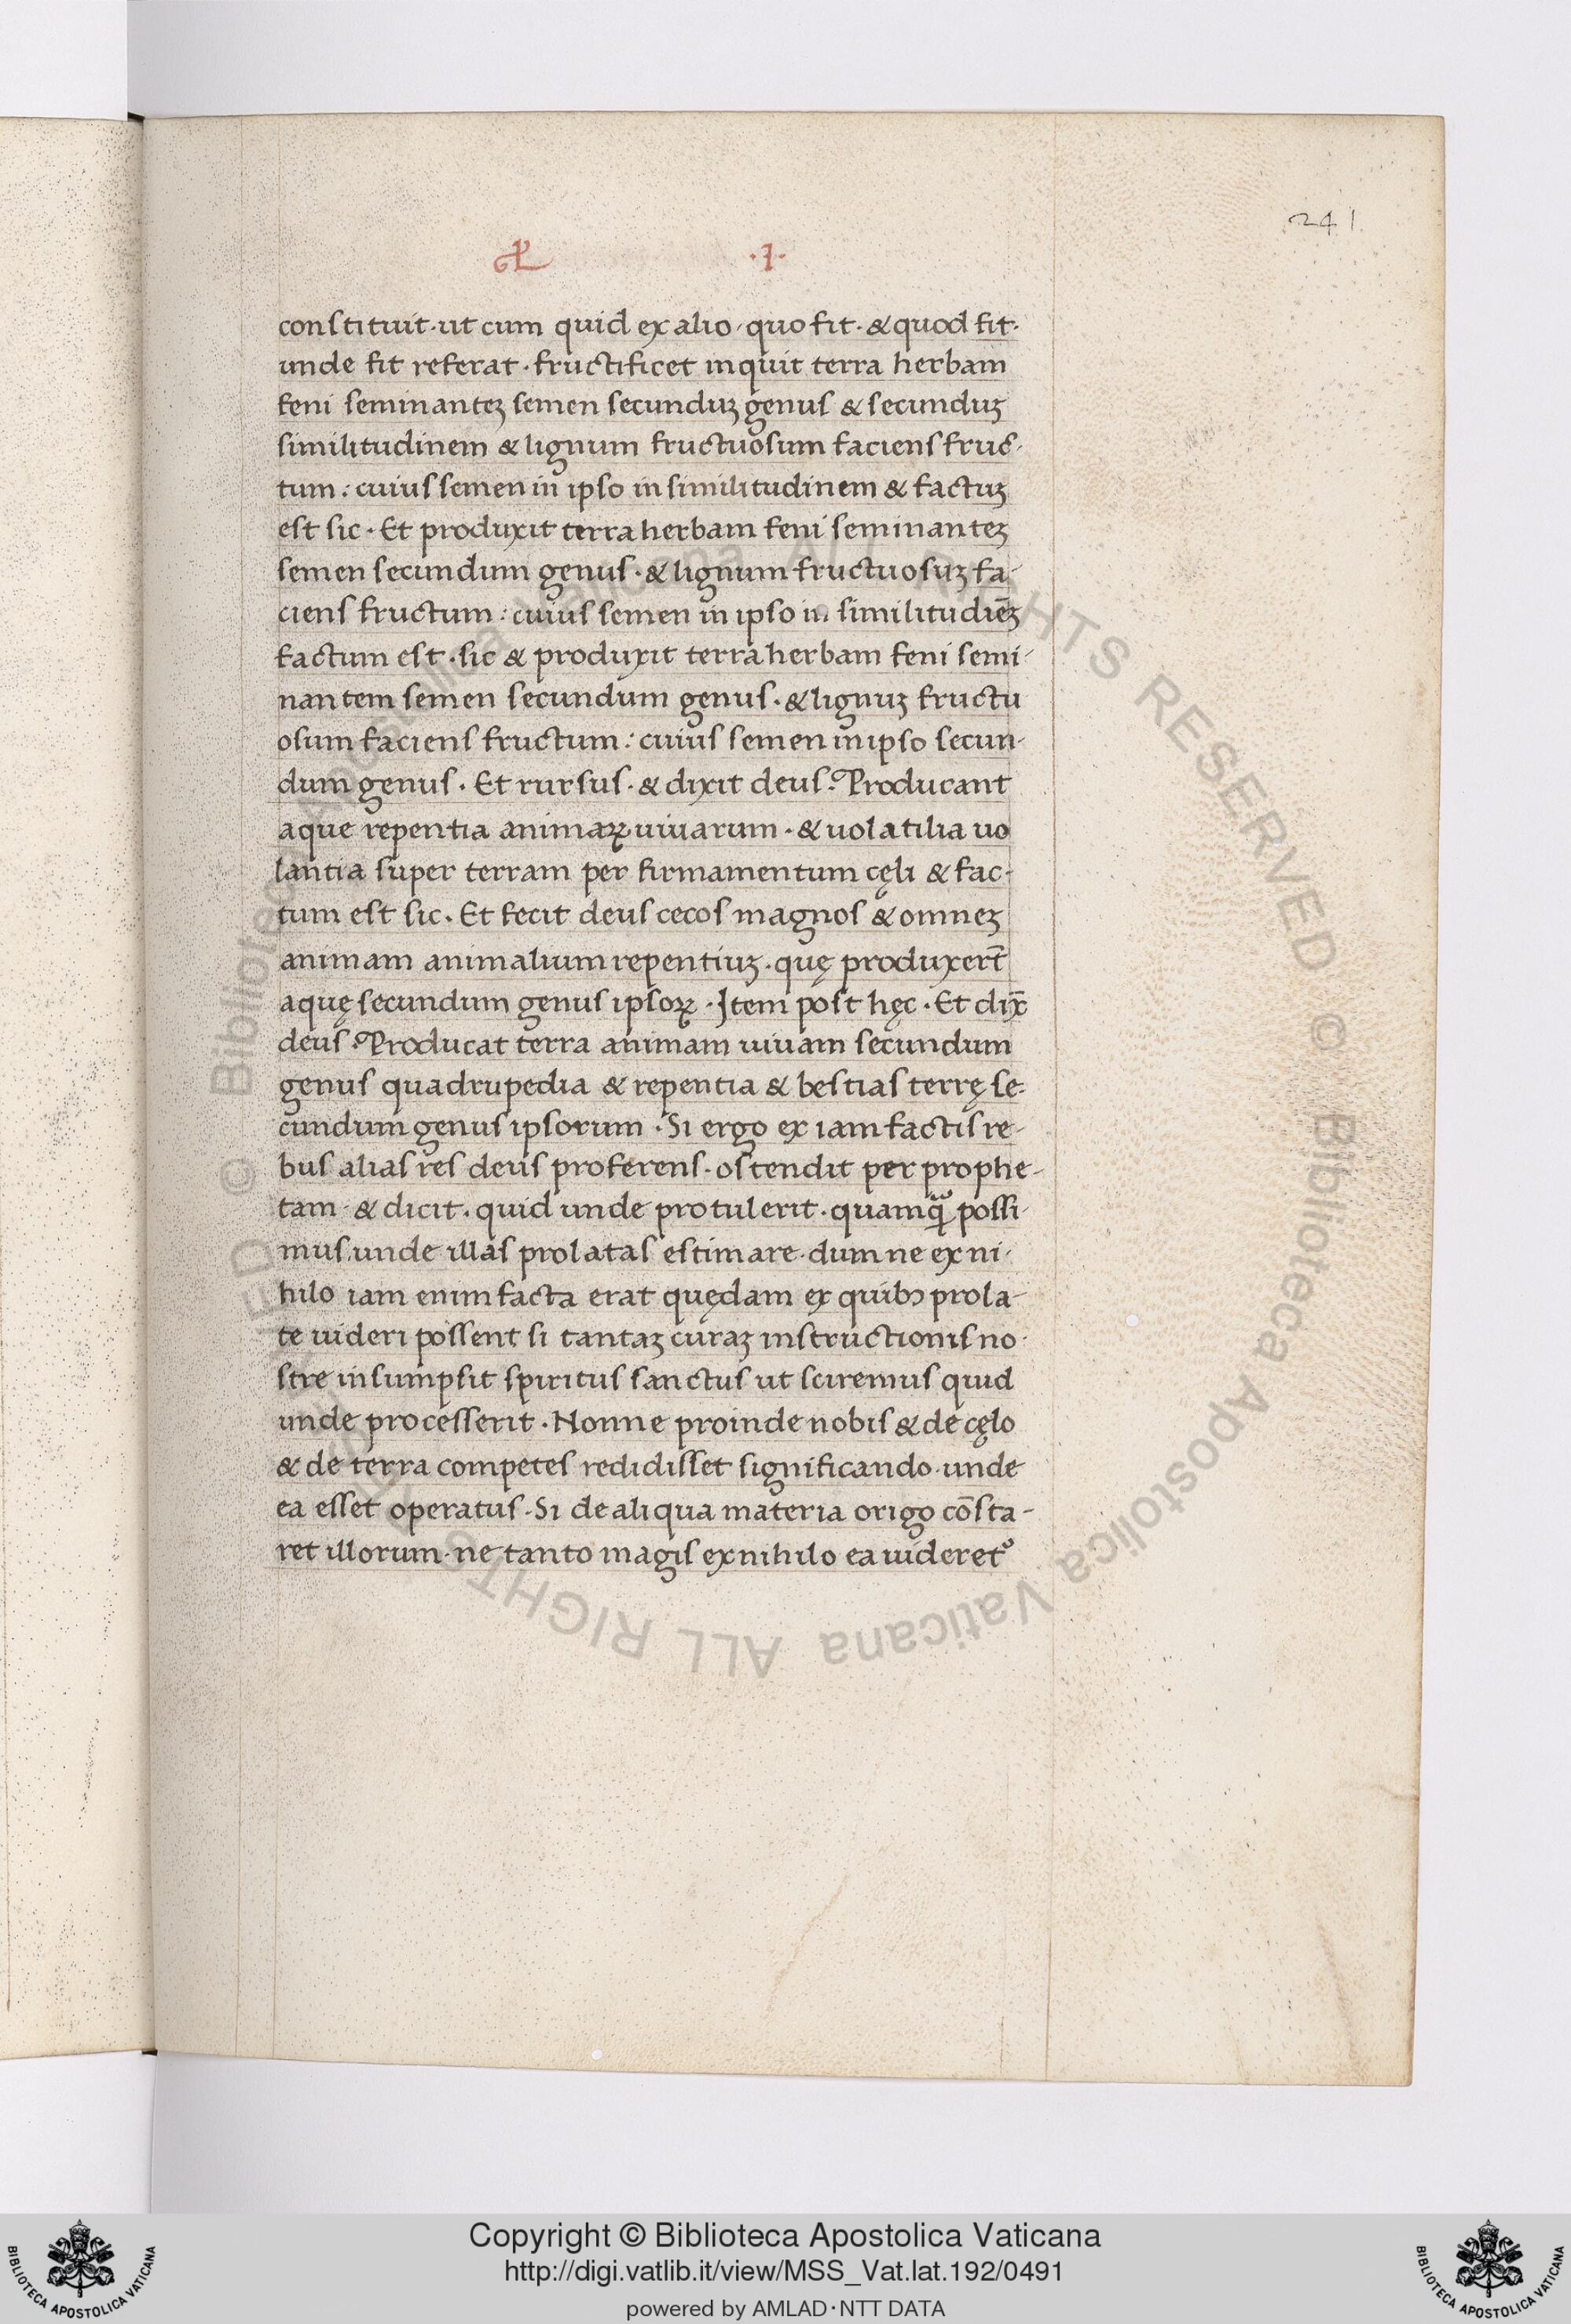 241
·I·
constituit·ut cum quid ex alio·quo fit·&quod fit·
unde fit referat·fructificet inquit terra herbam
feni seminanteꝫ semen secunduꝫ genus & secunduꝫ
similitudinem & lignum fructuosum faciens fruc-
tum: cuius semen in ipso in similitudinem & factuꝫ
est sic·Et produxit terra herbam feni seminanteꝫ
semen secundum genus·& lignum fructuosuꝫ fa-
ciens fructum: cuius semen in ipso in similitudiēꝫ
factum est·sic & produxit terra herbam feni semi-
nantem semen secundum genus·& lignuꝫ fructu
osum faciens fructum: cuius semen in ipso secun-
dum genus·Et rursus·& dixit deus: Producant
aque repentia animaꝝ uiuarum·& uolatilia uo
lantia super terram per firmamentum cęli & fac-
tum est sic·Et fecit deus cecos magnos & omneꝫ
animam animalium repentiuꝫ·quę produxert̄
aquę secundum genus ipsoꝝ·Item post hęc·Et dix̄
deus: Producat terra animam uiuam secundum
genus quadrupedia & repentia & bestias terrę se-
cundum genus ipsorum·Si ergo ex iam factis re-
bus alias res deus proferens·ostendit per prophe-
tam·& dicit·quid unde protulerit·quamqͣ̄ possi-
mus unde illas prolatas estimare·dum ne ex ni-
hilo iam enim facta erat quędam ex quibꝰ prola-
te uideri possent si tantaꝫ curaꝫ instructionis no-
stre insumpsit spiritus sanctus ut sciremus quid
unde processerit·Nonne proinde nobis & de cęlo
& de terra competes redidisset significando·unde
ea esset operatus·Si de aliqua materia origo cōsta-
ret illorum·ne tanto magis ex nihilo ea uideretᷣ
© Biblioteca Apostolica Vaticana ALL RIGHTS RESERVED © Biblioteca Apostolica Vaticana ALL RIGHTS RESERVED
Copyright © Biblioteca Apostolica Vaticana
http://digi.vatlib.it/view/MSS_Vat.lat.192/0491
powered by AMLAD·NTT DATA
BIBLIOTECA APOSTOLICA VATICANA
BIBLIOTECA APOSTOLICA VATICANA